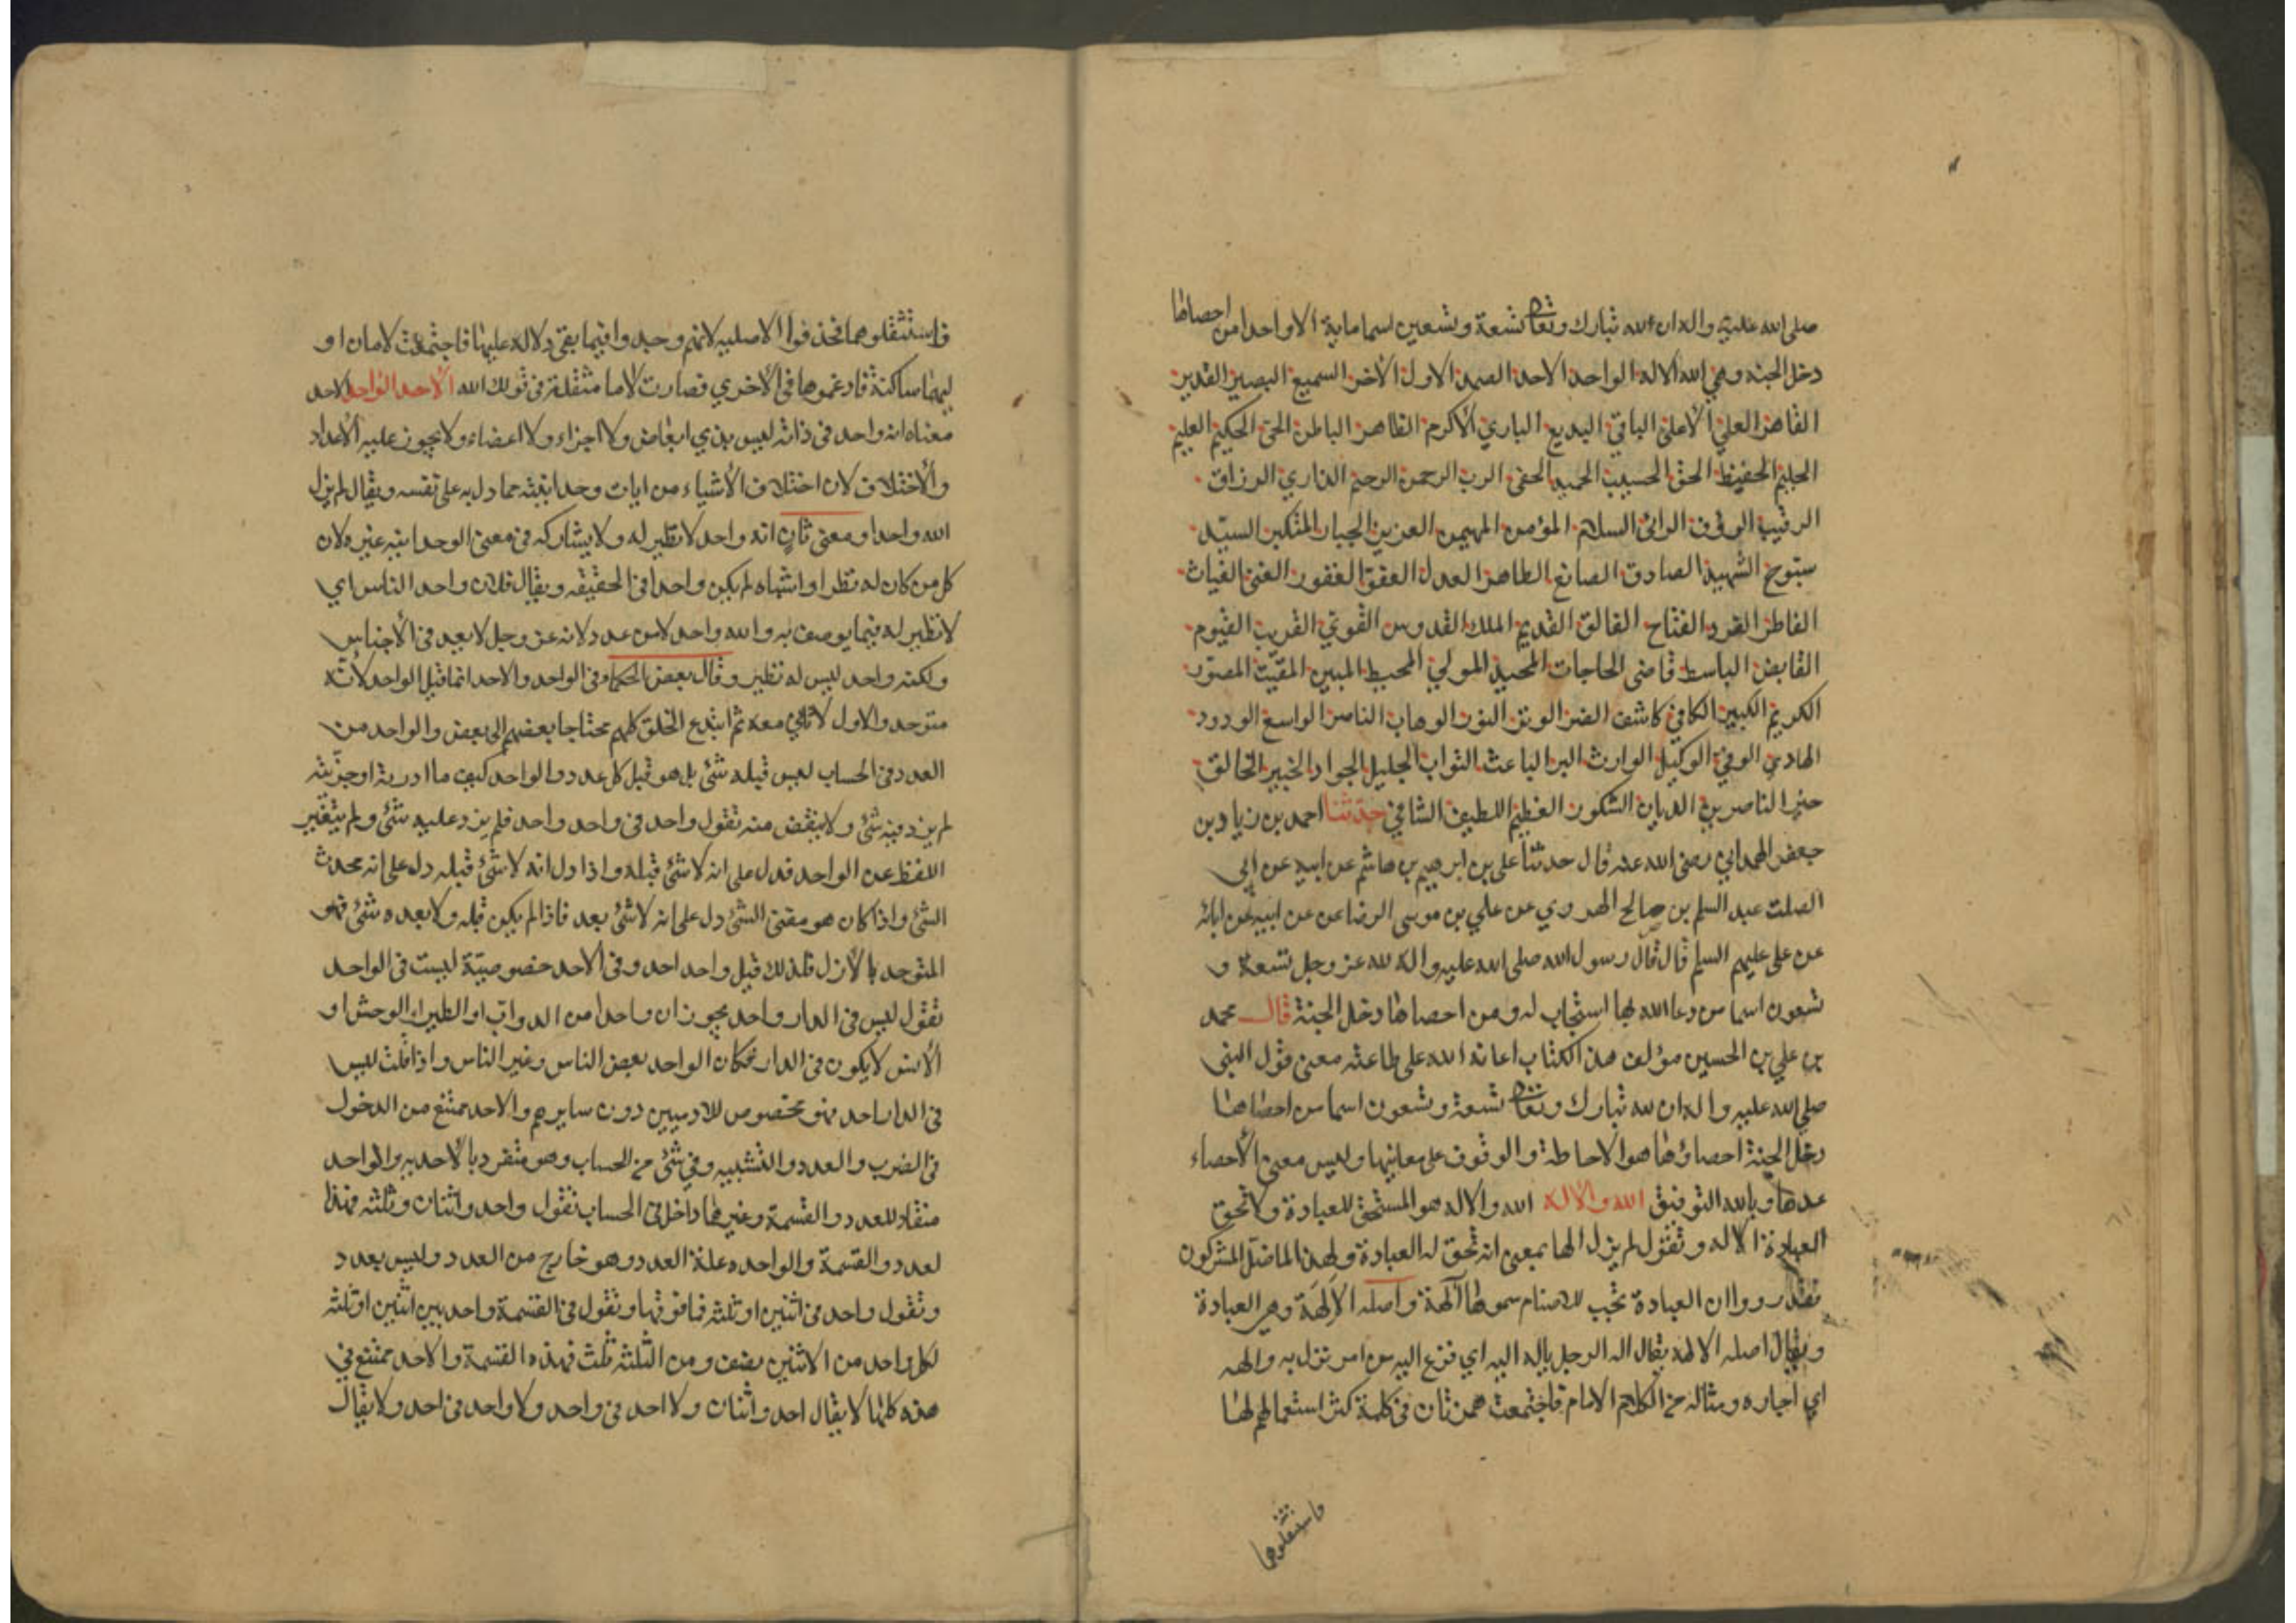 صلى الله عليه واله ان لله تبارك وتعالى تسعة وتسعين اسما ماية الا واحدا من احصاها
دخل الجنه وهي الله الاله الواحد الاحد الصمد الاول الآخر السميع البصير القدير
القاهر العلي الأعلى الباقي البديع الباري الأكرم الظاهر الباطن الحي الحكيم العليم
الحليم الحفيظ الحق الحسيب الحميد الحفي الرب الرحمن الرحيم الذاري الرزاق
الرقيب الروف الرائي السلام المؤمن المهيمن العزيز الجبار المتكبر السيّد
سبّوح الشهيد الصادق الصانع الطاهر العدل العفوّ الغفور الغنى الغياث
الفاطر الفرد الفتاح الفالق القديم الملك القدوس القويّ القريب القيوم
القابض الباسط قاضى الحاجات المجيد المولي المحيط المبين المقيت المصوّر
الكريم الكبير الكافي كاشف الضر الوتر النور الوهاب الناصر الواسع الودود
الهادي الوفي الوكيل الوارث البر الباعث التواب الجليل الجواد الخبير الخالق
خير الناصرين الديان الشكور العظيم اللطيف الشافي حدثنا احمد بن زياد بن
جعفر الهمداني رضى الله عنه قال حدثنا على بن ابرهيم بن هاشم عن ابيه عن ابي
الصلت عبد السلم بن صالح الهروي عن علي بن موسى الرضا عن عن ابيه عن ابائه
عن على عليهم السلم قال قال رسول الله صلى الله عليه واله لله عز وجل تسعة و
تسعون اسما من دعا الله بها استجاب له ومن احصاها دخل الجنة قال محمد
بن علي بن الحسين مؤلف هذا الكتاب اعانه الله على طاعته معنى قول النبي
صلي الله عليه واله ان لله تبارك وتعالى تسعة وتسعون اسما من احصاها
دخل الجنة احصاؤها هو الاحاطة والوقوف على معانيها وليس معنى الأحصاء
عدها وبالله التوفيق الله والاله الله والاله هو المستحق للعبادة ولا تحق
العبادة الا له وتقول لم يزل الها بمعنى انه تحق له العبادة ولهذا لما ضلّ المشركون
فقدّروا ان العبادة تجب للاصنام سموها آلهة واصله الإلهة وهى العبادة
ويقال اصله الاله يقال اله الرجل ياله اليه اي فزع اليه من امر نزل به والهه
اي اجاره ومثاله من الكلام الامام فاجتمعت همزتان في كلمة كثر استعمالهم لها
فاستثقلوهما
فاستثقلوهما فحذفوا الاصليه لانهم وجدوا فيما بقى دلالة عليها فاجتمعت لامان او
ليهما ساكنة فادغموها في الأخري فصارت لاما مثقلة في قولك الله الأحد الواحد الاحد
معناه انه واحد في ذاته ليس بذي ابعاض ولا اجزاء ولا اعضاء ولا يجوز عليه الأعداد
والأختلاف لان اختلاف الأشياء من ايات وحدانيته مما دل به على نفسه ويقال لم يزل
الله واحدا ومعنى ثانٍ انه واحد لا نظير له ولا يشاركه في معنى الوحدانيه غيره لان
كل من كان له نظرا واشباه لم يكن واحدا في الحقيقه ويقال فلان واحد الناس اي
لا نظير له فيما يوصف به والله واحد لا من عدد لانه عز وجل لا يعد في الأجناس
ولكنه واحد ليس له نظير وقال بعض الحكماء في الواحد والاحد انما قيل الواحد لأنّه
متوحد والاول لا ثاني معه ثم ابتدع الخلق كلهم محتاجا بعضهم الى بعض والواحد من
العدد في الحساب ليس قبله شئ بل هو قبل كل عدد والواحد كيف ما ادرته او جزّيته
لم يزد فيه شئ ولا ينقض منه تقول واحد في واحد واحد فلم يزد عليه شئ ولم يتغير
اللفظ عن الواحد فدل على انه لا شئ قبله واذا دل انه لا شئ قبله دل على انه محدث
الشئ واذا كان هو مفنى الشئ دل على انه لا شئ بعد فاذا لم يكن قبله ولا بعده شئ فهو
المتوحد بالأزل فلذلك قيل واحد احد وفي الأحد خصوصيّة ليست في الواحد
تقول ليس في الدار واحد يجوز ان واحدا من الدواب او الطير او الوحش او
الأنس لا يكون في الدار فكان الواحد بعض الناس وغير الناس واذا قلت ليس
في الدار احد فهو مخصوص للادميين دون سايرهم والاحد ممتنع من الدخول
في الضرب والعدد والتشبيه وفي شئ من الحساب وهو متفرد بالأحديه والواحد
منقاد للعدد والقسمة وغيرهما داخل في الحساب تقول واحد واثنان وثلثه فهذا
لعدد والقسمة والواحد علة العدد وهو خارج من العدد وليس بعدد
وتقول واحد في اثنين او ثلثه فما فوقها وتقول في القسمة واحد بين اثنين او ثلثه
لكل واحد من الاثنين نصف ومن الثلثه ثلث فهذه القسمة والاحد ممتنع في
هذه كلها لا يقال احد واثنان ولا احد في واحد ولا واحد في احد ولا يقال